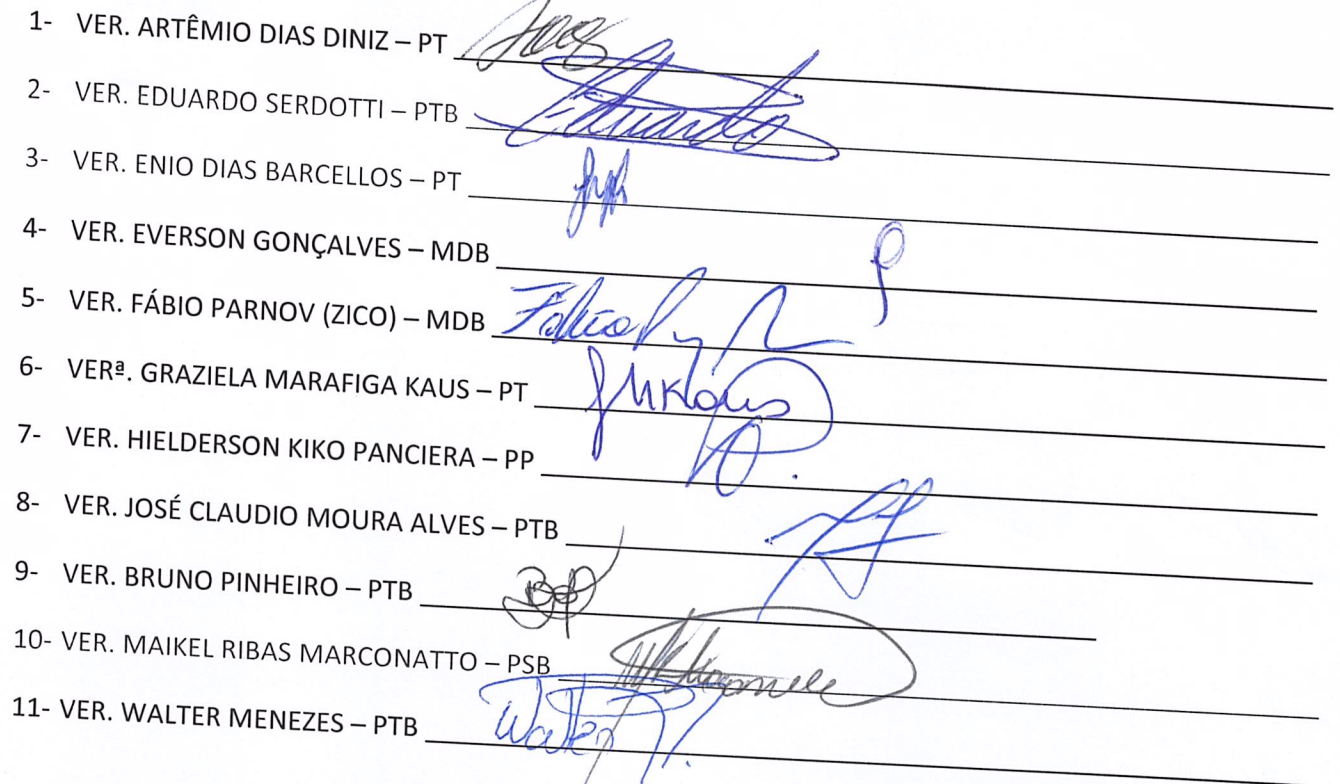 1- VER. ARTÊMIO DIAS DINIZ – PT
2- VER. EDUARDO SERDOTTI – PTB Eduardo
3- VER. ENIO DIAS BARCELLOS – PT
4- VER. EVERSON GONÇALVES – MDB
5- VER. FÁBIO PARNOV (ZICO) – MDB
6- VERª. GRAZIELA MARAFIGA KAUS – PT
7- VER. HIELDERSON KIKO PANCIERA – PP
8- VER. JOSÉ CLAUDIO MOURA ALVES – PTB
9- VER. BRUNO PINHEIRO – PTB
10- VER. MAIKEL RIBAS MARCONATTO – PSB
11- VER. WALTER MENEZES – PTB Walter